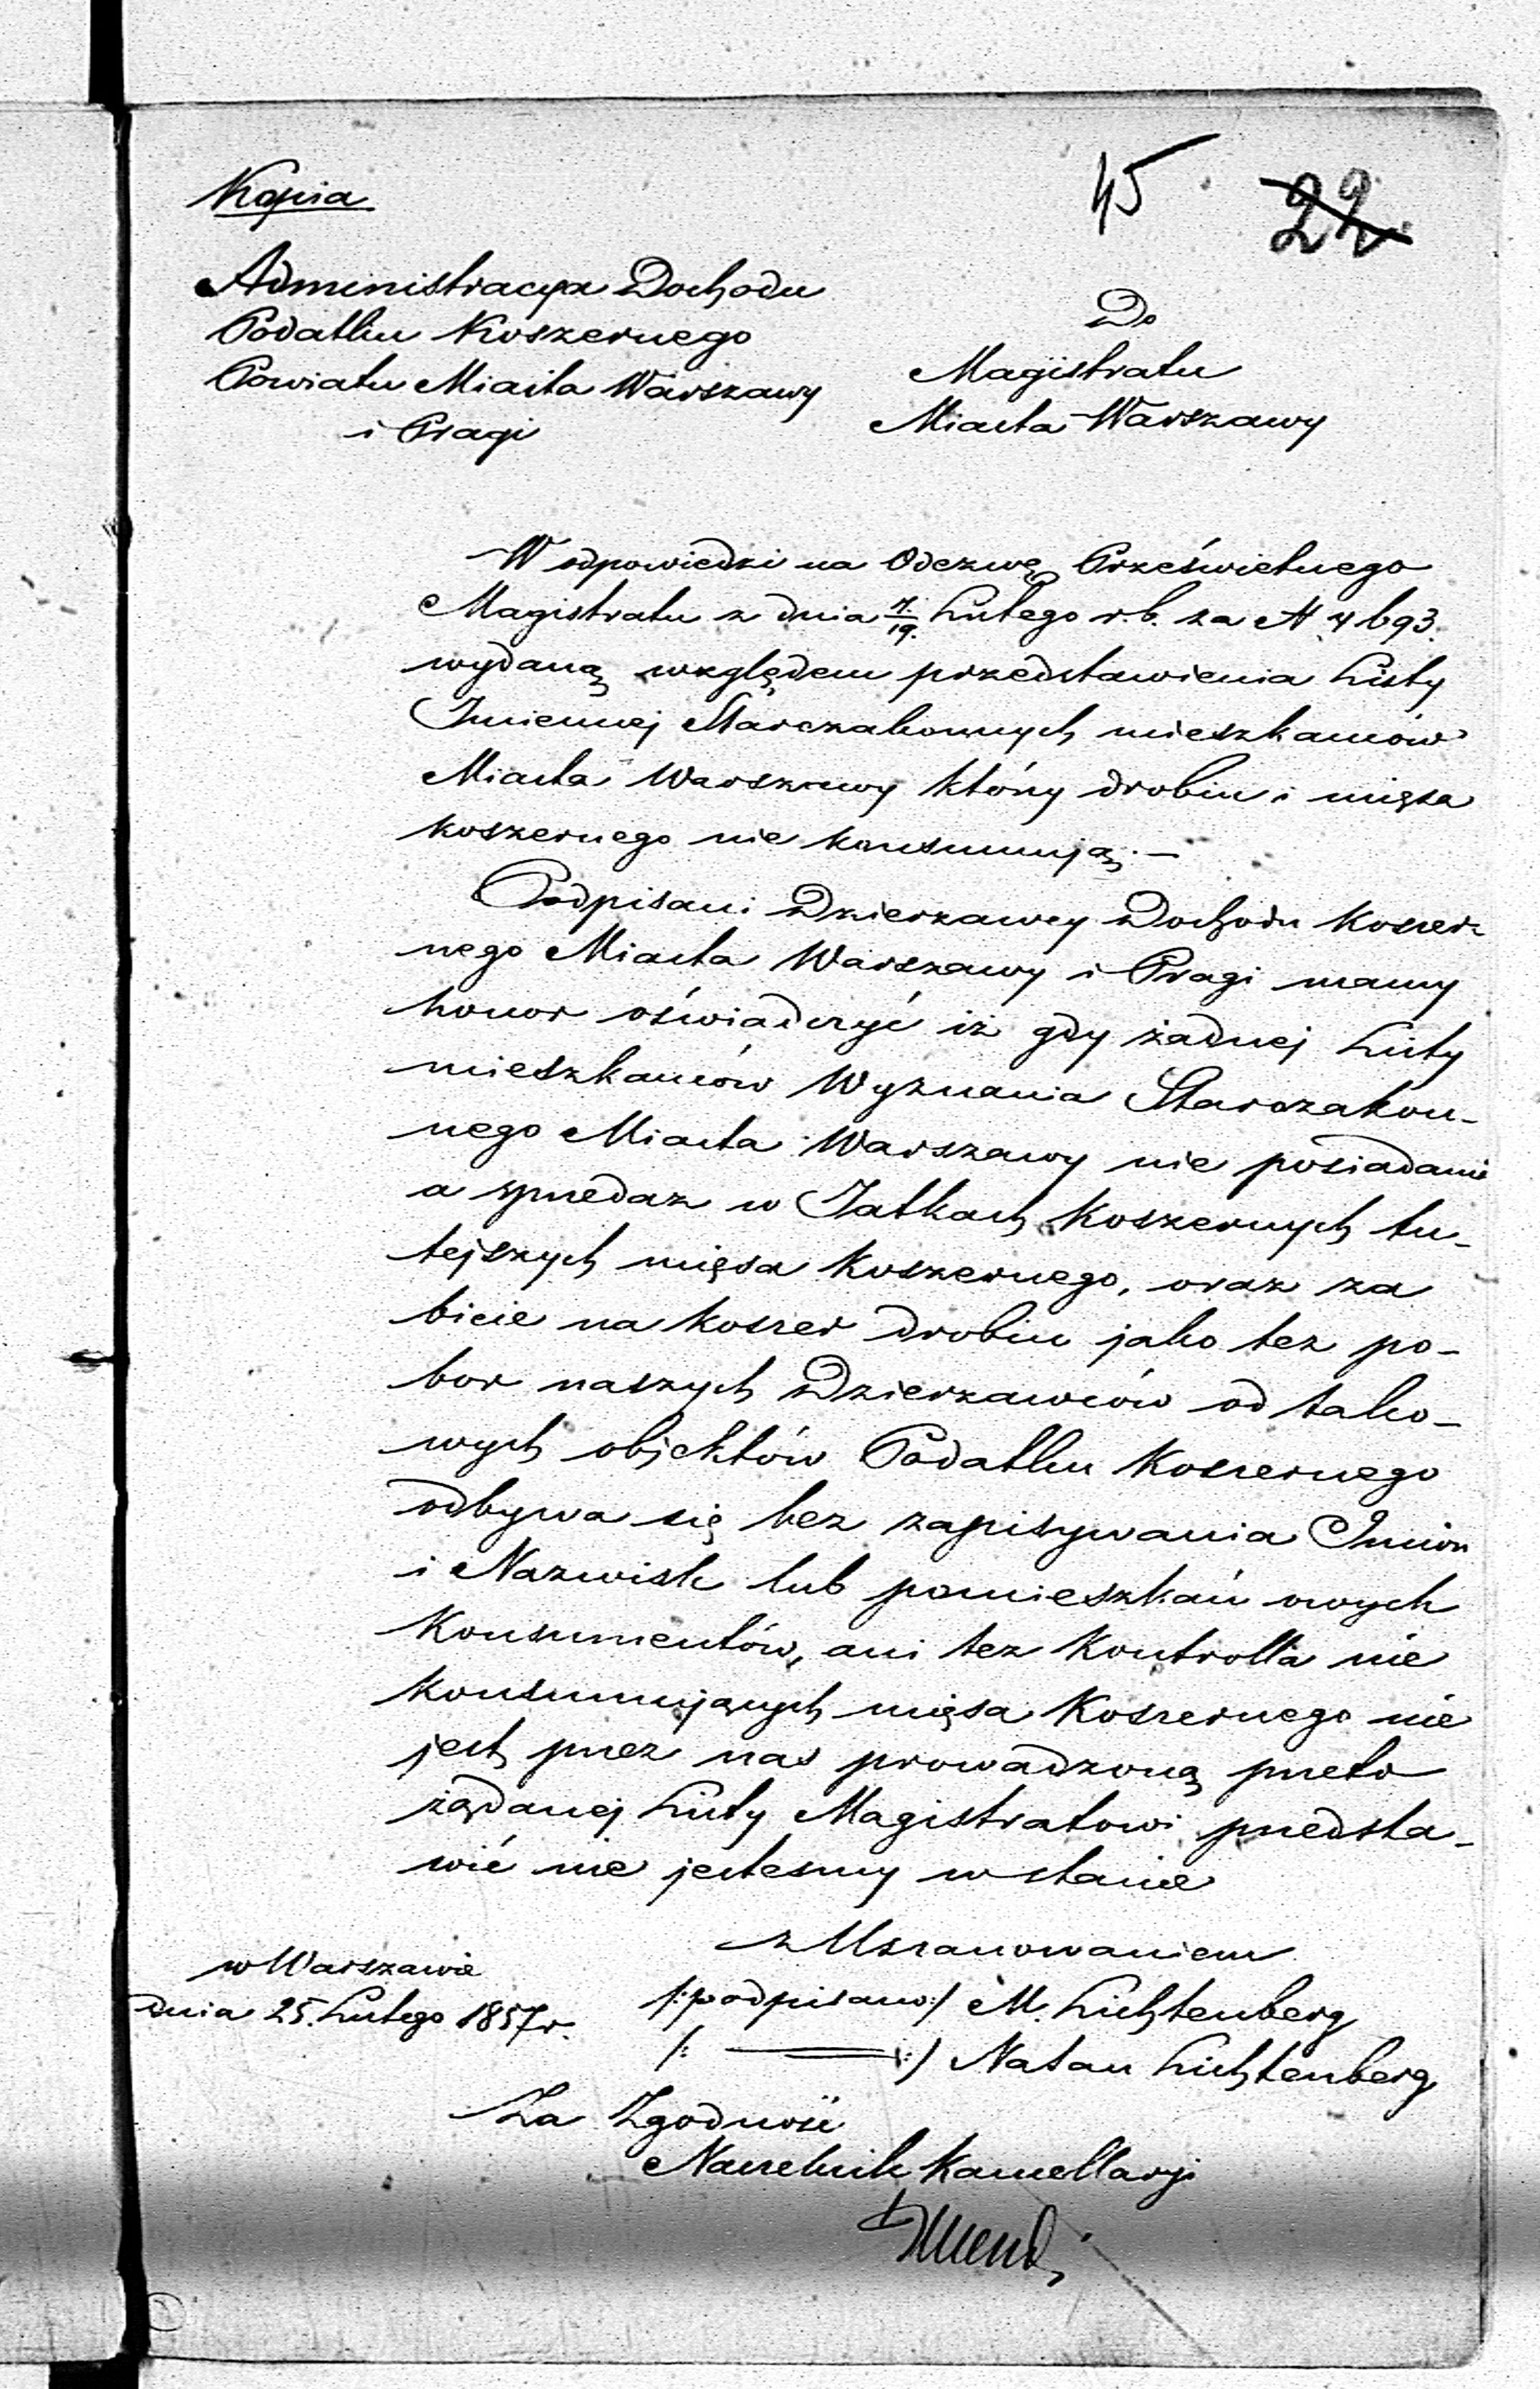 Kopia
45 22
Administracya Dochodu
Podatku Koszernego
Powiatu Miasta Warszawy
i Pragi
Do
Magistratu
Miasta Warszawy
W odpowiedzi na Odezwę Prześwietnego
Magistratu z dnia 7/19. Lutego r.b. za N 4693.
wydaną względem przedstawienia Listy
Imiennej Starozakonnych mieszkańców
Miasta Warszawy który drobiu i mięsa
koszernego nie konsumują.—
Podpisani Dzierzawcy Dochodu Koszer-
nego Miasta Warszawy i Pragi mamy
honor oświadczyć iż gdy żadnej Listy
mieszkańców Wyznania Starozakon-
nego Miasta Warszawy nie posiadamy
a sprzedaz w Jatkach Koszernych tu-
tejszych mięsa Koszernego, oraz za
bicie na koszer drobiu jako tez po-
bor naszych Dzierzawców od tako-
wych objektów Podatku Koszernego
odbywa się bez zapisywania Imion
i Nazwisk lub pomieszkań owych
Konsumentów, ani tez Kontrolla nie
konsumujących mięsa Koszernego nie
jest przez nas prowadzoną przeto
żądanej Listy Magistratowi przedsta-
wić nie jestesmy w stanie
z Uszanowaniem
w Warszawie
dnia 25. Lutego 1857 r.
/:podpisano:/ M. Lichtenberg
/: —— :/ Natan Lichtenberg
Za Zgodność
Naczelnik Kancellaryi